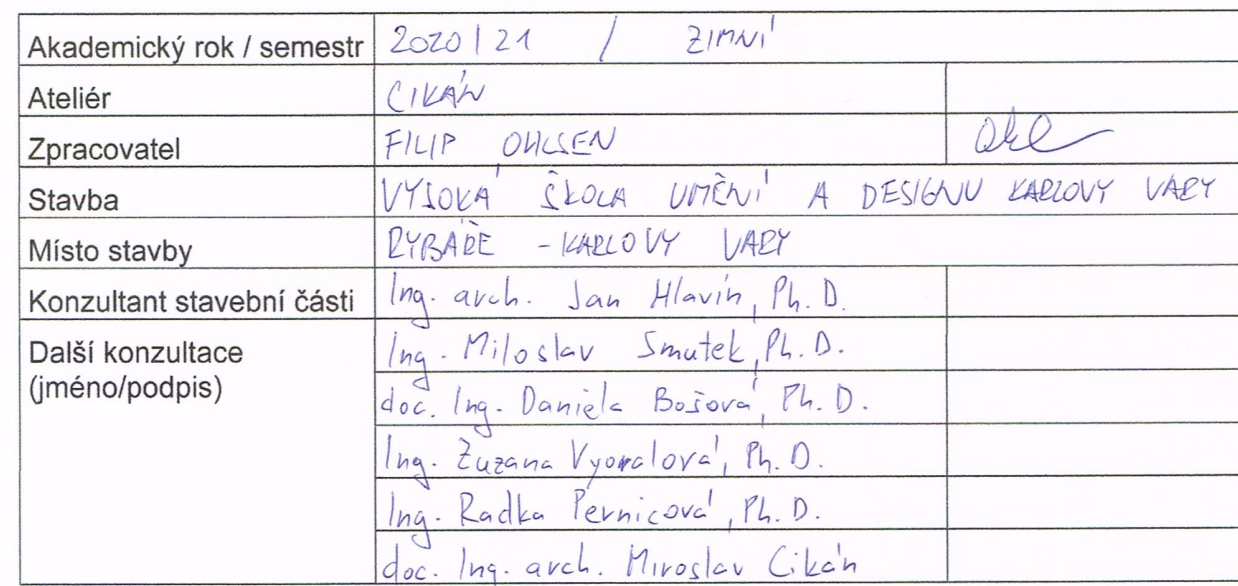 Akademický rok / semestr 2020/21 / ZIMNÍ
Ateliér CIKÁN
Zpracovatel FILIP OHLSEN
Stavba VYSOKÁ ŠKOLA UMĚNÍ A DESIGNU KARLOVY VARY
Místo stavby RYBÁŘE - KARLOVY VARY
Konzultant stavební části Ing. arch. Jan Hlavín, Ph.D.
Další konzultace Ing. Miloslav Smutek, Ph.D.
(jméno/podpis) doc. Ing. Daniela Bošová, Ph.D.
Ing. Zuzana Vyoralová, Ph.D.
Ing. Radka Pernicová, Ph.D.
doc. Ing. arch. Miroslav Cikán